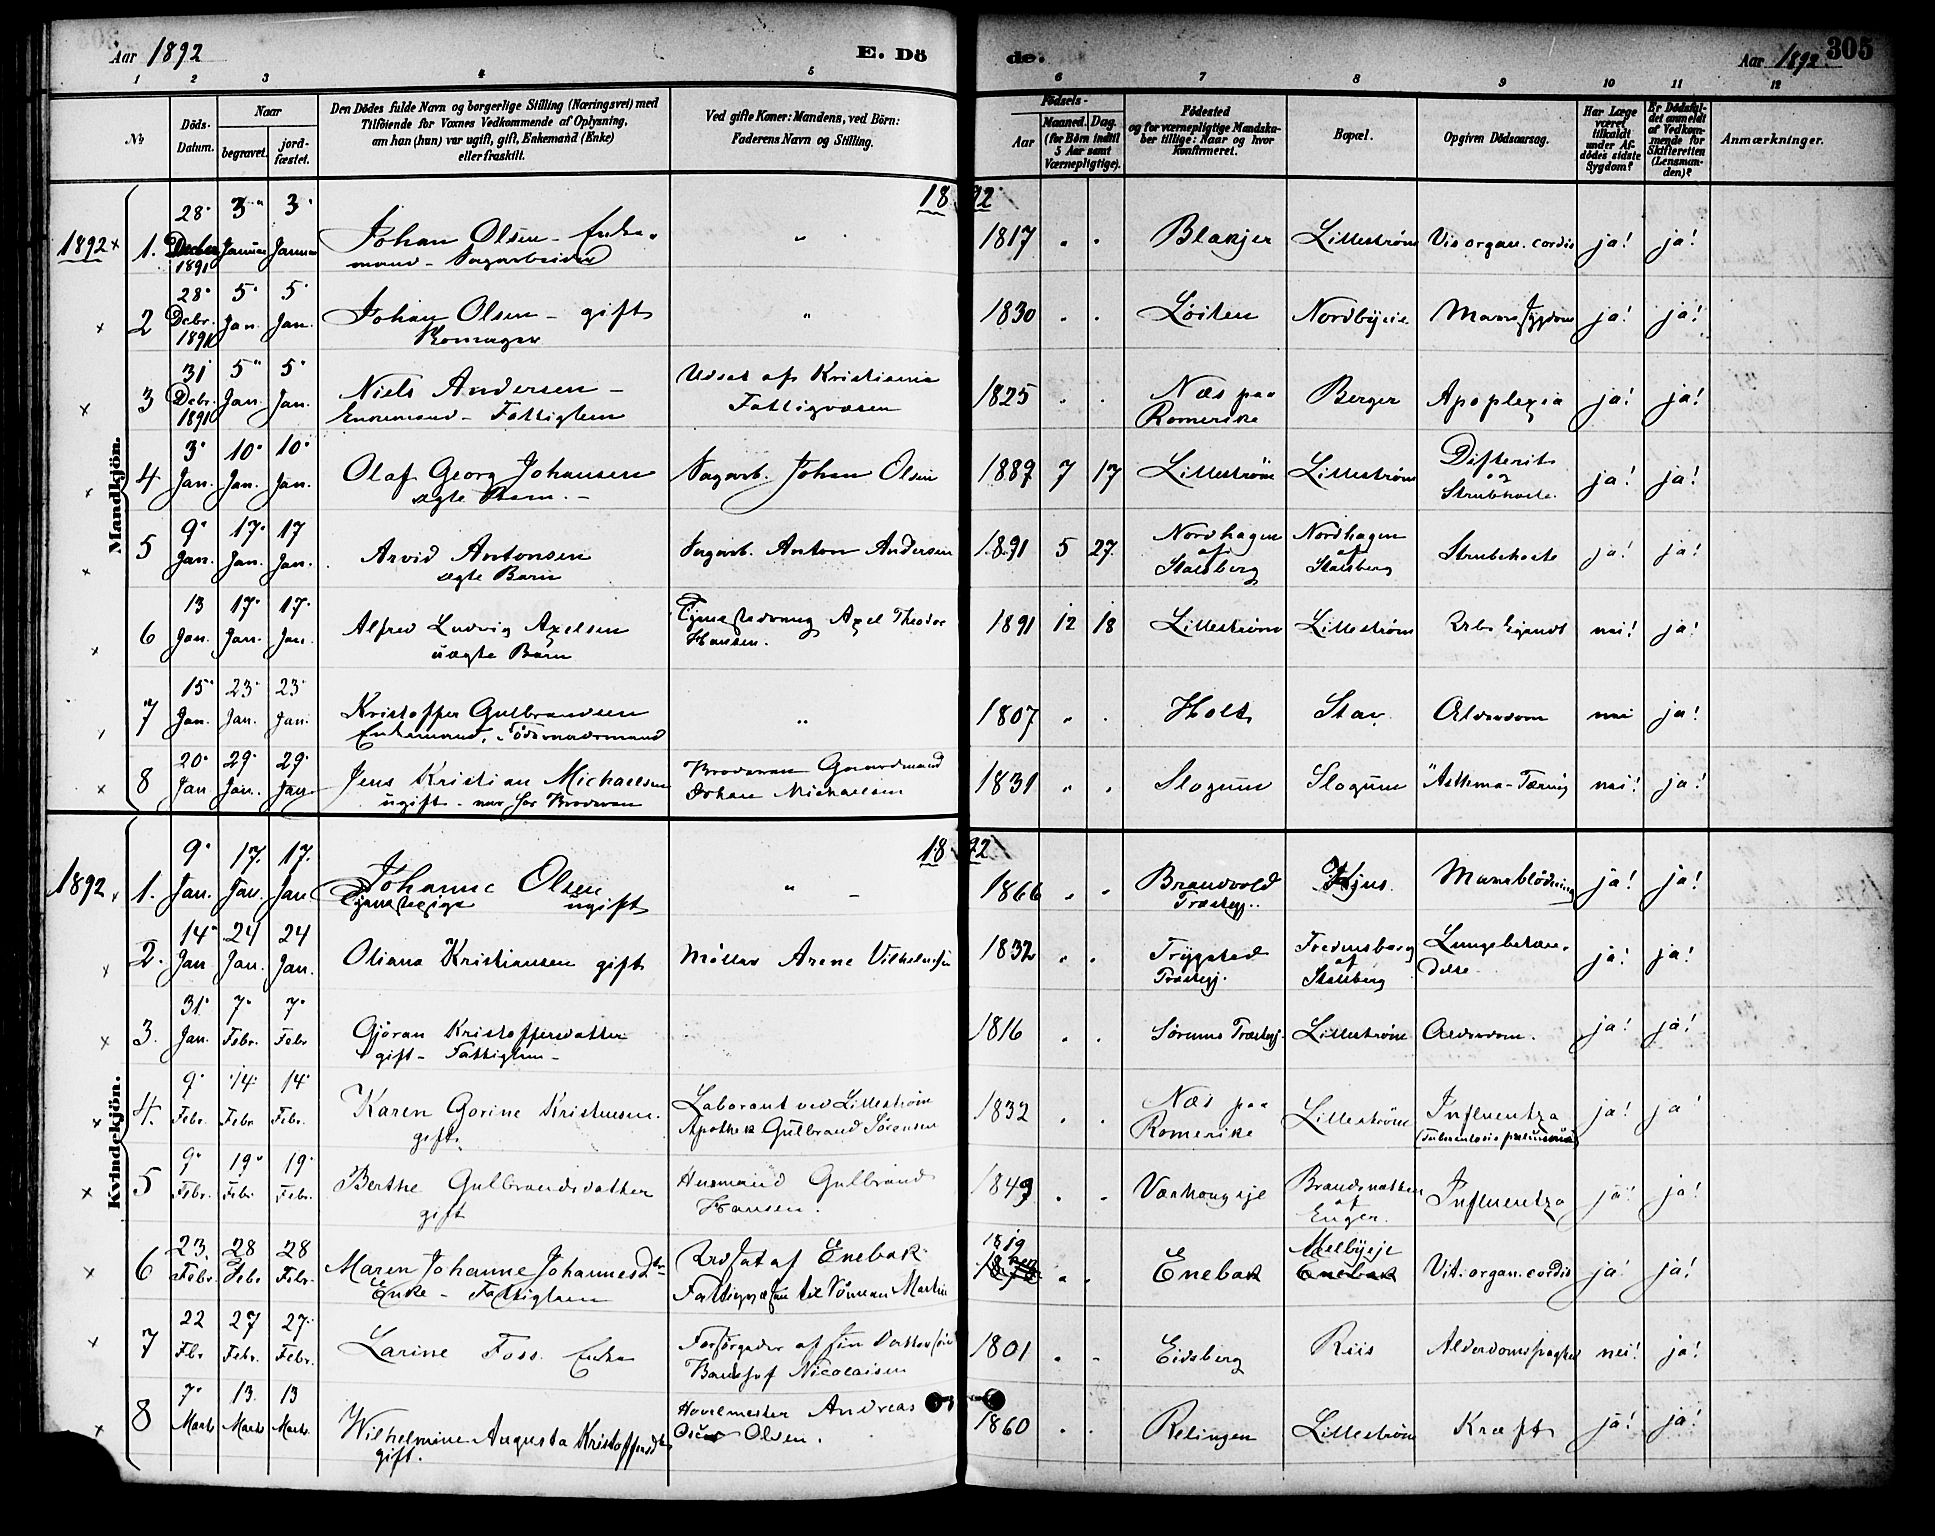 Aar 1892
E. Dö
de.
Aar 1892.
305
1 2 3 4 5 6 7 8 9 10 11 12
No
Döds-Datum.
Naar
begravet.
jordfæstet.
Den Dödes fulde Navn og borgerlige Stilling (Næringsvei) med
Tilföiende for Voxnes Vedkommende af Oplysning,
om han (hun) var ugift, gift, Enkemand (Enke)
eller fraskilt.
Ved gifte Koner: Mandens, ved Börn:
Faderens Navn og Stilling.
Födsels-
Aar
Maaned.
Dag.
(for Börn indtil
5 Aar samt
Værnepligtige).
Födested
og for værnepligtige Mandskaber tillige: Naar og hvor
Konfirmeret.
Bopæl.
Opgiven Dödsaarsag.
Har Læge
været
tilkaldt
under Afdödes sidste
Sygdom?
Er Dödsfaldet anmeldt
af Vedkommende for
Skifteretten
(Lensmanden)?
Anmærkninger.
Mandkjön.
1892
1892 1. 28. Decber 1891 3. Januar 3. Januar
Johan Olsen - Enkemand - Sagarbeider
" 1817 " " Blakjer Lillestrøm Vit. organ. cordis ja! ja!
2 28. Debr. 1891 5. Jan. 5. Jan.
Johan Olsen - gift
" 1830 . . Løiten Nordbyeie Mavesygdom ja! ja!
3 31 Debr. 1891 5. Jan. 5. Jan.
Niels Andersen -
Enkemand - Fattiglem
Udsat af Kristiania
Fattigvæsen
1825 . . Næs paa
Romerike
Berger Apoplexia ja! ja!
4 3. Jan. 10. Jan. 10. Jan.
Olaf Georg Johansen
ægte Barn. -
Sagarb. Johan Olsen
1889 7 17 Lillestrøm Lillestrøm
Difterit
og
Strubehoste.
ja! ja!
5 9. Jan. 17. Jan. 17 Jan.
Arvid Antonsen
ægte Barn
Sagarb. Anton Andersen
1891 5 27
Nordhagen
af
Stalsberg
Nordhagen
af
Stalsberg
Strubehoste ja! ja!
6 13 Jan. 17. Jan. 17. Jan.
Alfred Ludvig Axelsen
uægte Barn
Tjenestedreng Axel Theodor
Hansen.
1891 12 18 Lillestrøm Lillestrøm nei! ja!
7 15. Jan. 23. Jan. 23. Jan.
Kristoffer Gulbrandsen
Enkemand, Föderaadsmand
" 1807 " . Holt Stav Alderdom nei ja!
8 20. Jan 29. Jan. 29. Jan
Jens Kristian Michaelsen
ugift - var hos Broderen
Broderen Gaardmand
Johan Michaelsen
1831 " . Slogum Slogum "Asthma - Tæring nei! ja!
Kvindekjön.
1892
1892 1. 9. Jan. 17. Jan. 17. Jan
Johanne Olsen
Tjenestepige ugift
" 1866 . . Brandvold
Præstegj..
Kjus. Maveblödning ja! ja!
2. 14. Jan 24 Jan. 24 Jan.
Oliana Kristiansen gift
Møller Arene Vilhelmsen
1832 . .
Trygstad
Præstegj.
Fredensborg
af
Stalsberg
Lungebetændelse
ja! ja!
3. 31. Jan. 7. Febr. 7. Febr
Gjöran Kristoffersdatter
gift - Fattiglem -
1816 . . Sörums Præstegj. Lillestrøm Alderdom. ja! ja!
4. 9. Febr. 14. Febr 14. Febr.
Karen Gorine Kristiansen.
gift.
Laborant ved Lillestrøm
Apothek Gulbrand Sörensen
1832 . .
Næs paa
Romerike
Lillestrøm
Influentza
(Tuberculosis pulmonum)
ja! ja!
5 9. Febr. 19. Febr 19. Febr.
Berthe Gulbrandsdatter
gift
Husmand Gulbrand
Hansen.
1849 . . Vaahougeje
Brandsnatten
af
Enger.
Influentza ja! ja!
6 23. Febr 28 Febr 28 Febr.
Maren Johanne Johannesdtr
Enke - Fattiglem
Udsat af Enebak
Fattigvæsen til Sönnen Martin
1819 . . Enebak
Melbyeje
Enebak
Vit. organ. cordis ja! ja!
7 22 Fbr. 27 Febr. 27. Febr.
Larine Foss. Enke
Forsörgedes af sin
Nicolaisen
1801 . . Eidsberg Riis nei! ja!
8 7. Marts 13. Marts 13 Marts.
Wilhelmine Augusta Kristoffersdtr
gift.
Hövelmester Andreas
Oscar Olsen.
1860 . . Relingen Lillestrøm Kræft ja! ja!